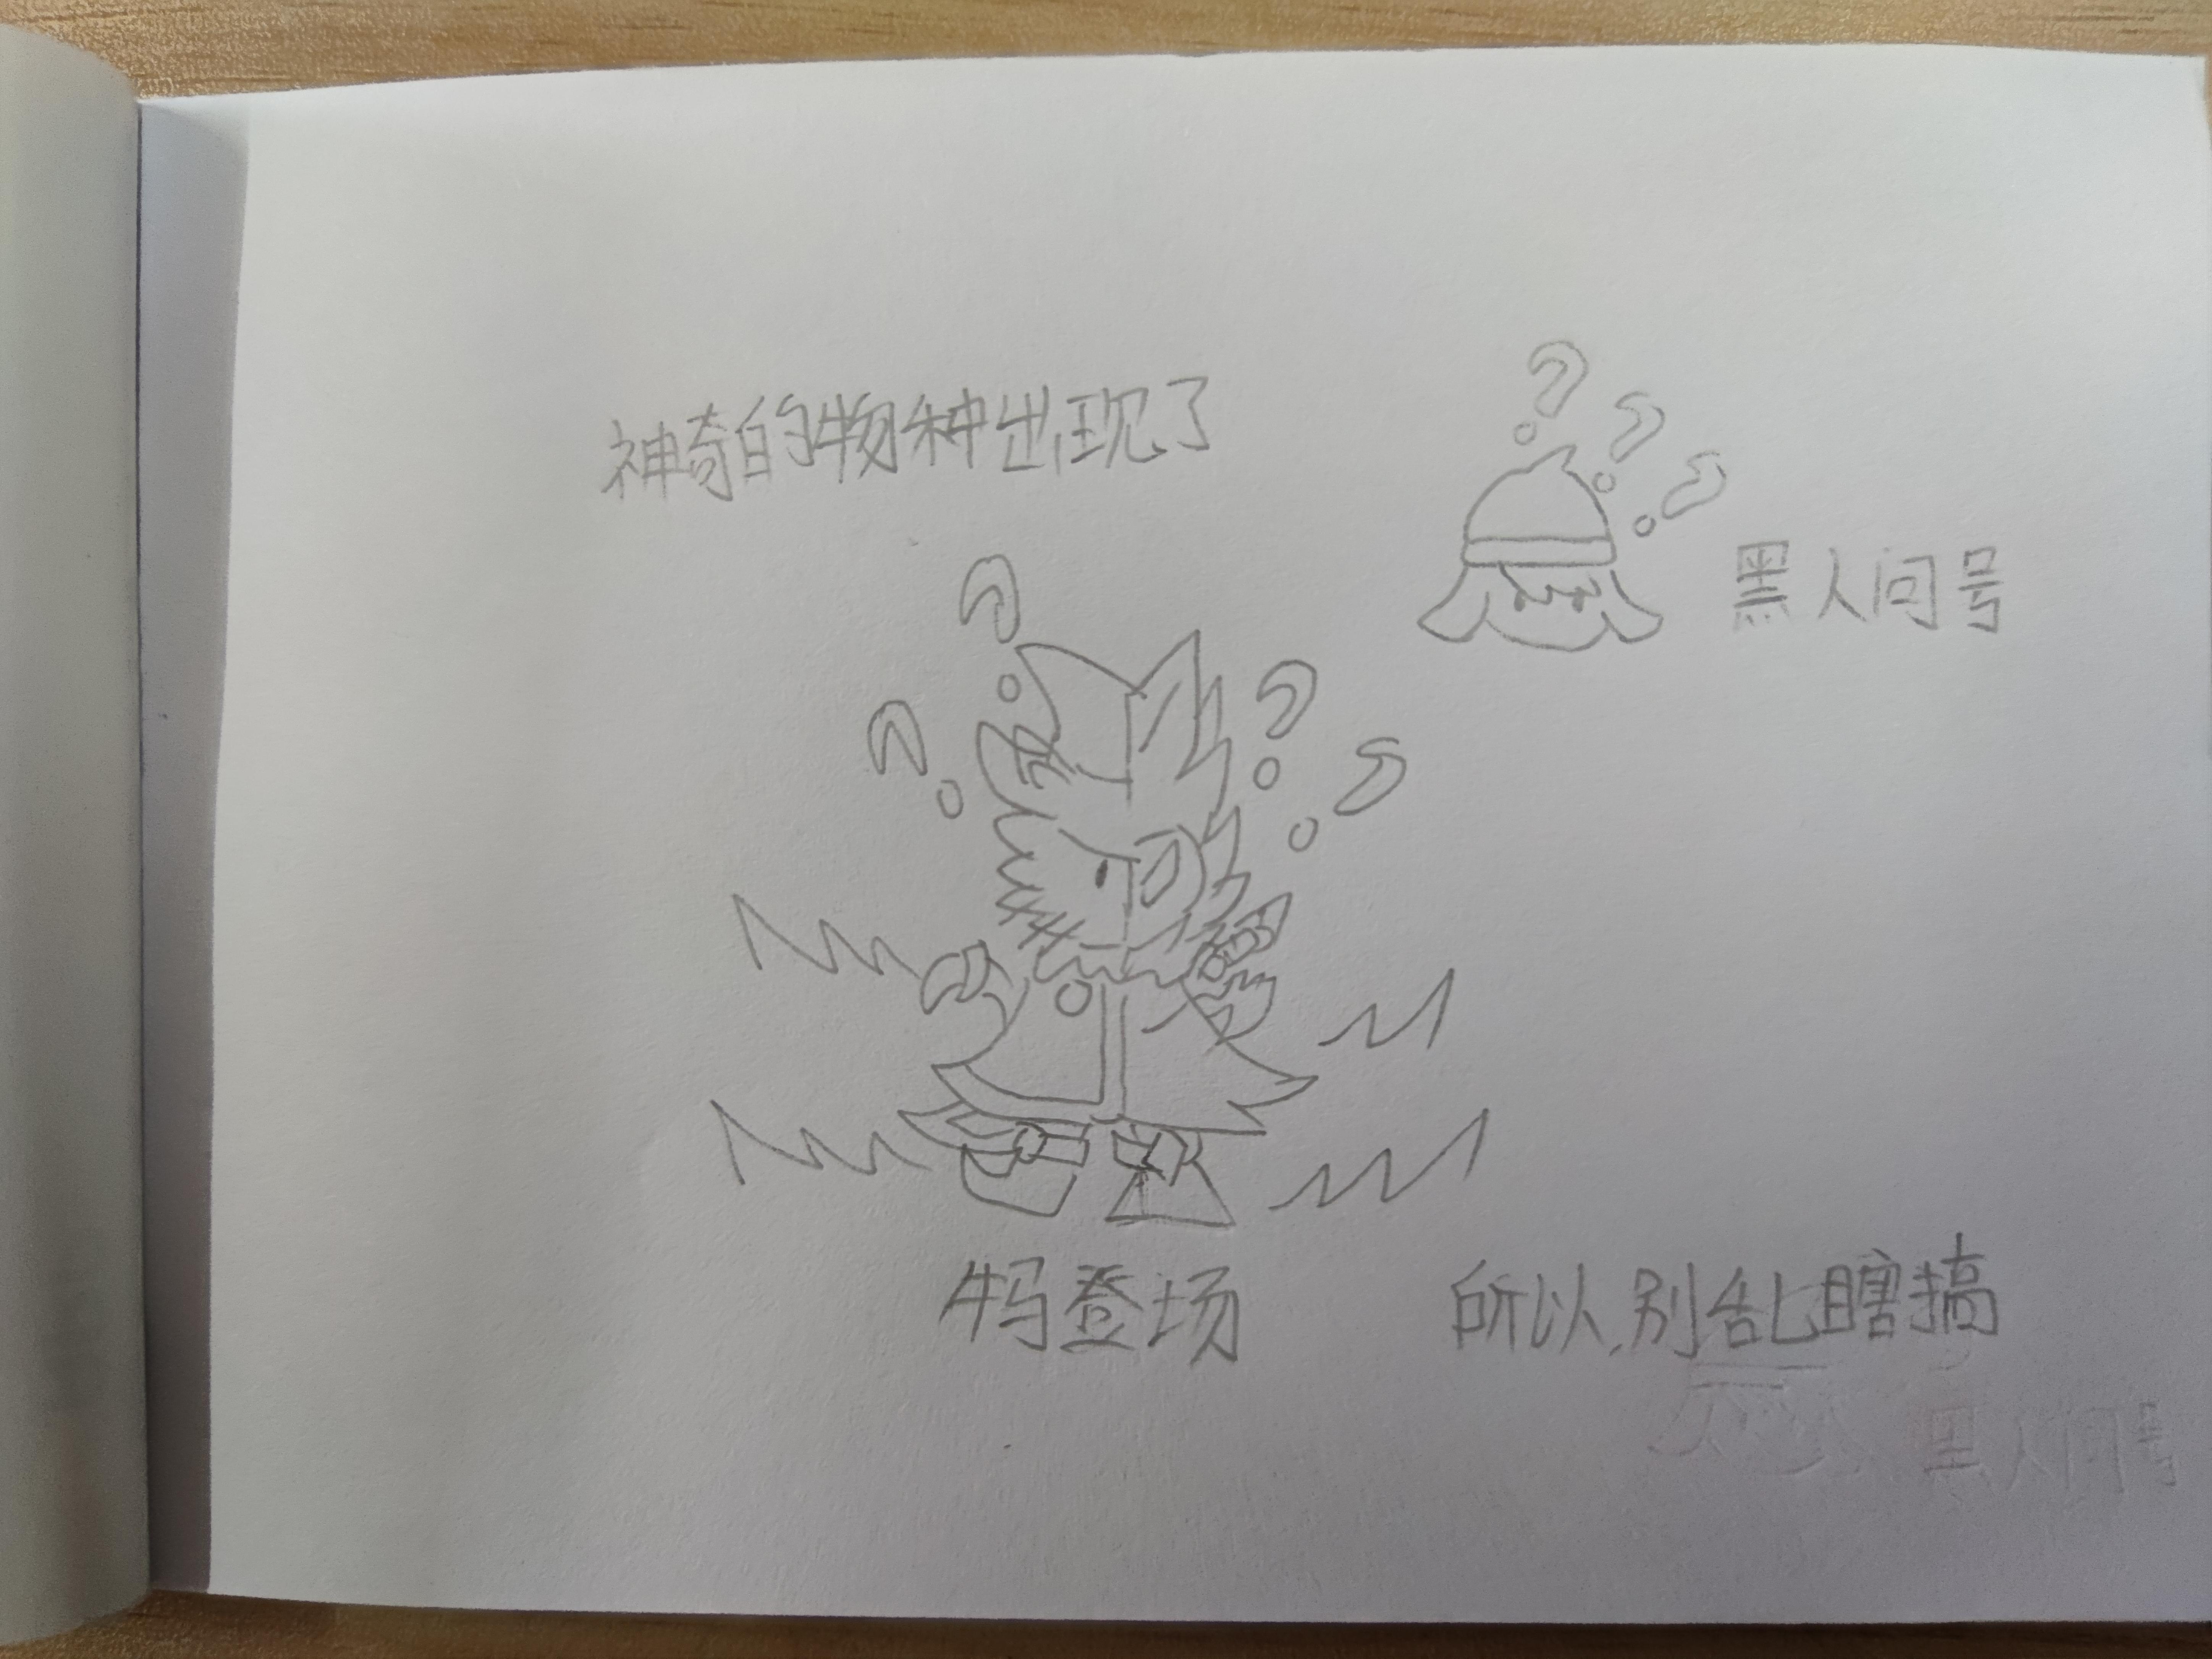 神奇的物种出现了
???
黑人问号
????
牛马登场
所以,别乱瞎搞
黑人问号